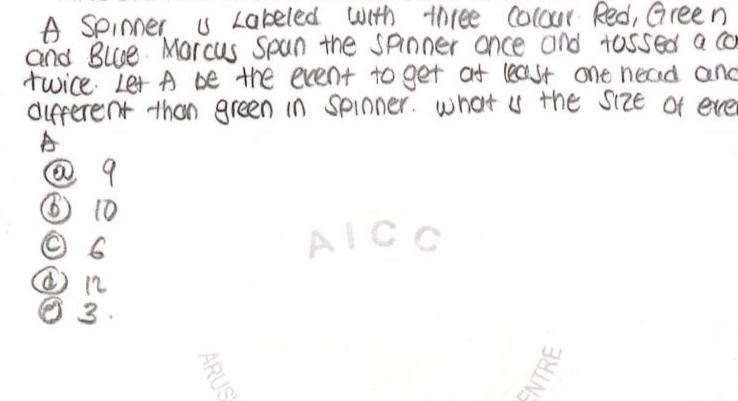 A Spinner is Labeled with three Colour. Red, Green
and Blue. Marcus Spun the spinner once and tossed a co
twice. Let A be the event to get at least one head and
different than green in spinner. what is the size of eve
A
(a) 9
(b) 10
(c) 6
(d) 12
(e) 3.
AICC
ARUS
ENTRE